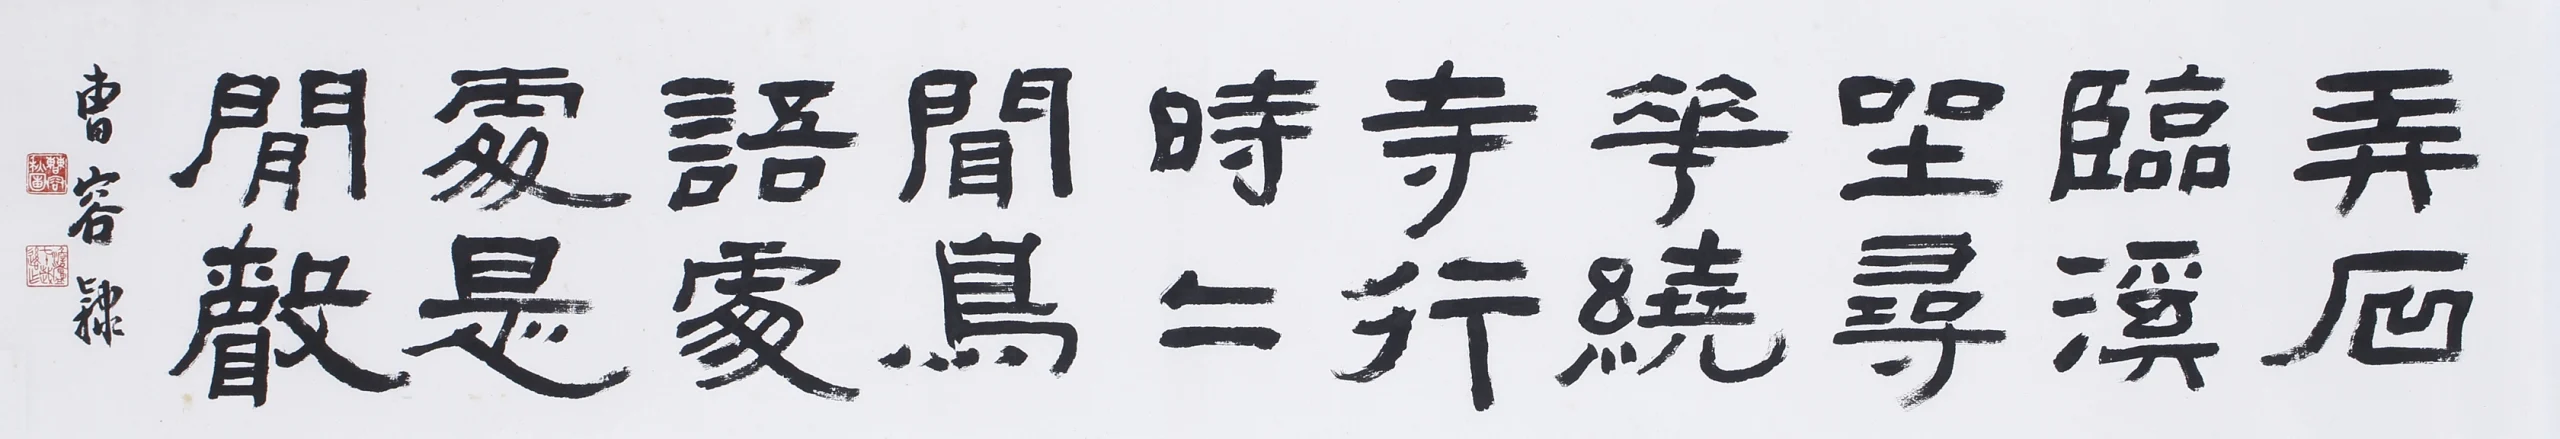 弄石
臨溪
坐尋
花繞
寺行
時々
聞鳥
語處
處是
閒聲
曹容隸
曹容
秋圃